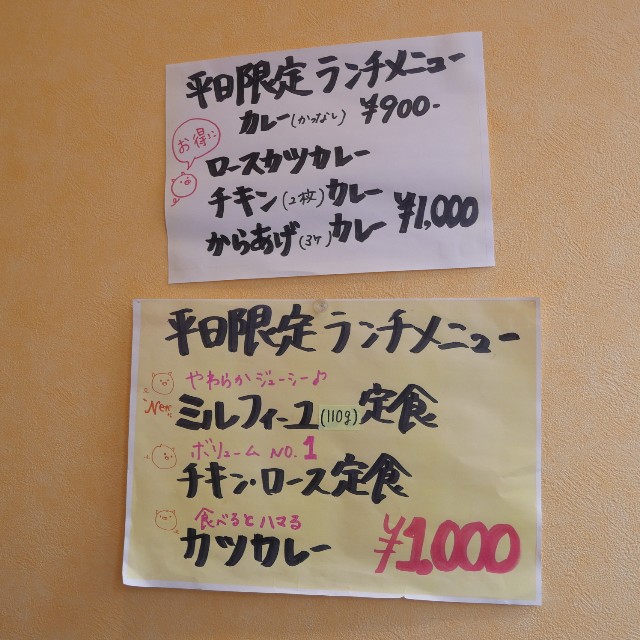 平日限定 ランチメニュー
カレー(かつなし) ¥900-
お得に
ロースカツカレー
チキン(2枚)カレー
からあげ(3ケ)カレー ¥1,000
平日限定 ランチメニュー
やわらかジューシー♪
New
ミルフィーユ(110g)定食
ボリューム NO.1
チキン・ロース定食
食べるとハマる
カツカレー ¥1,000